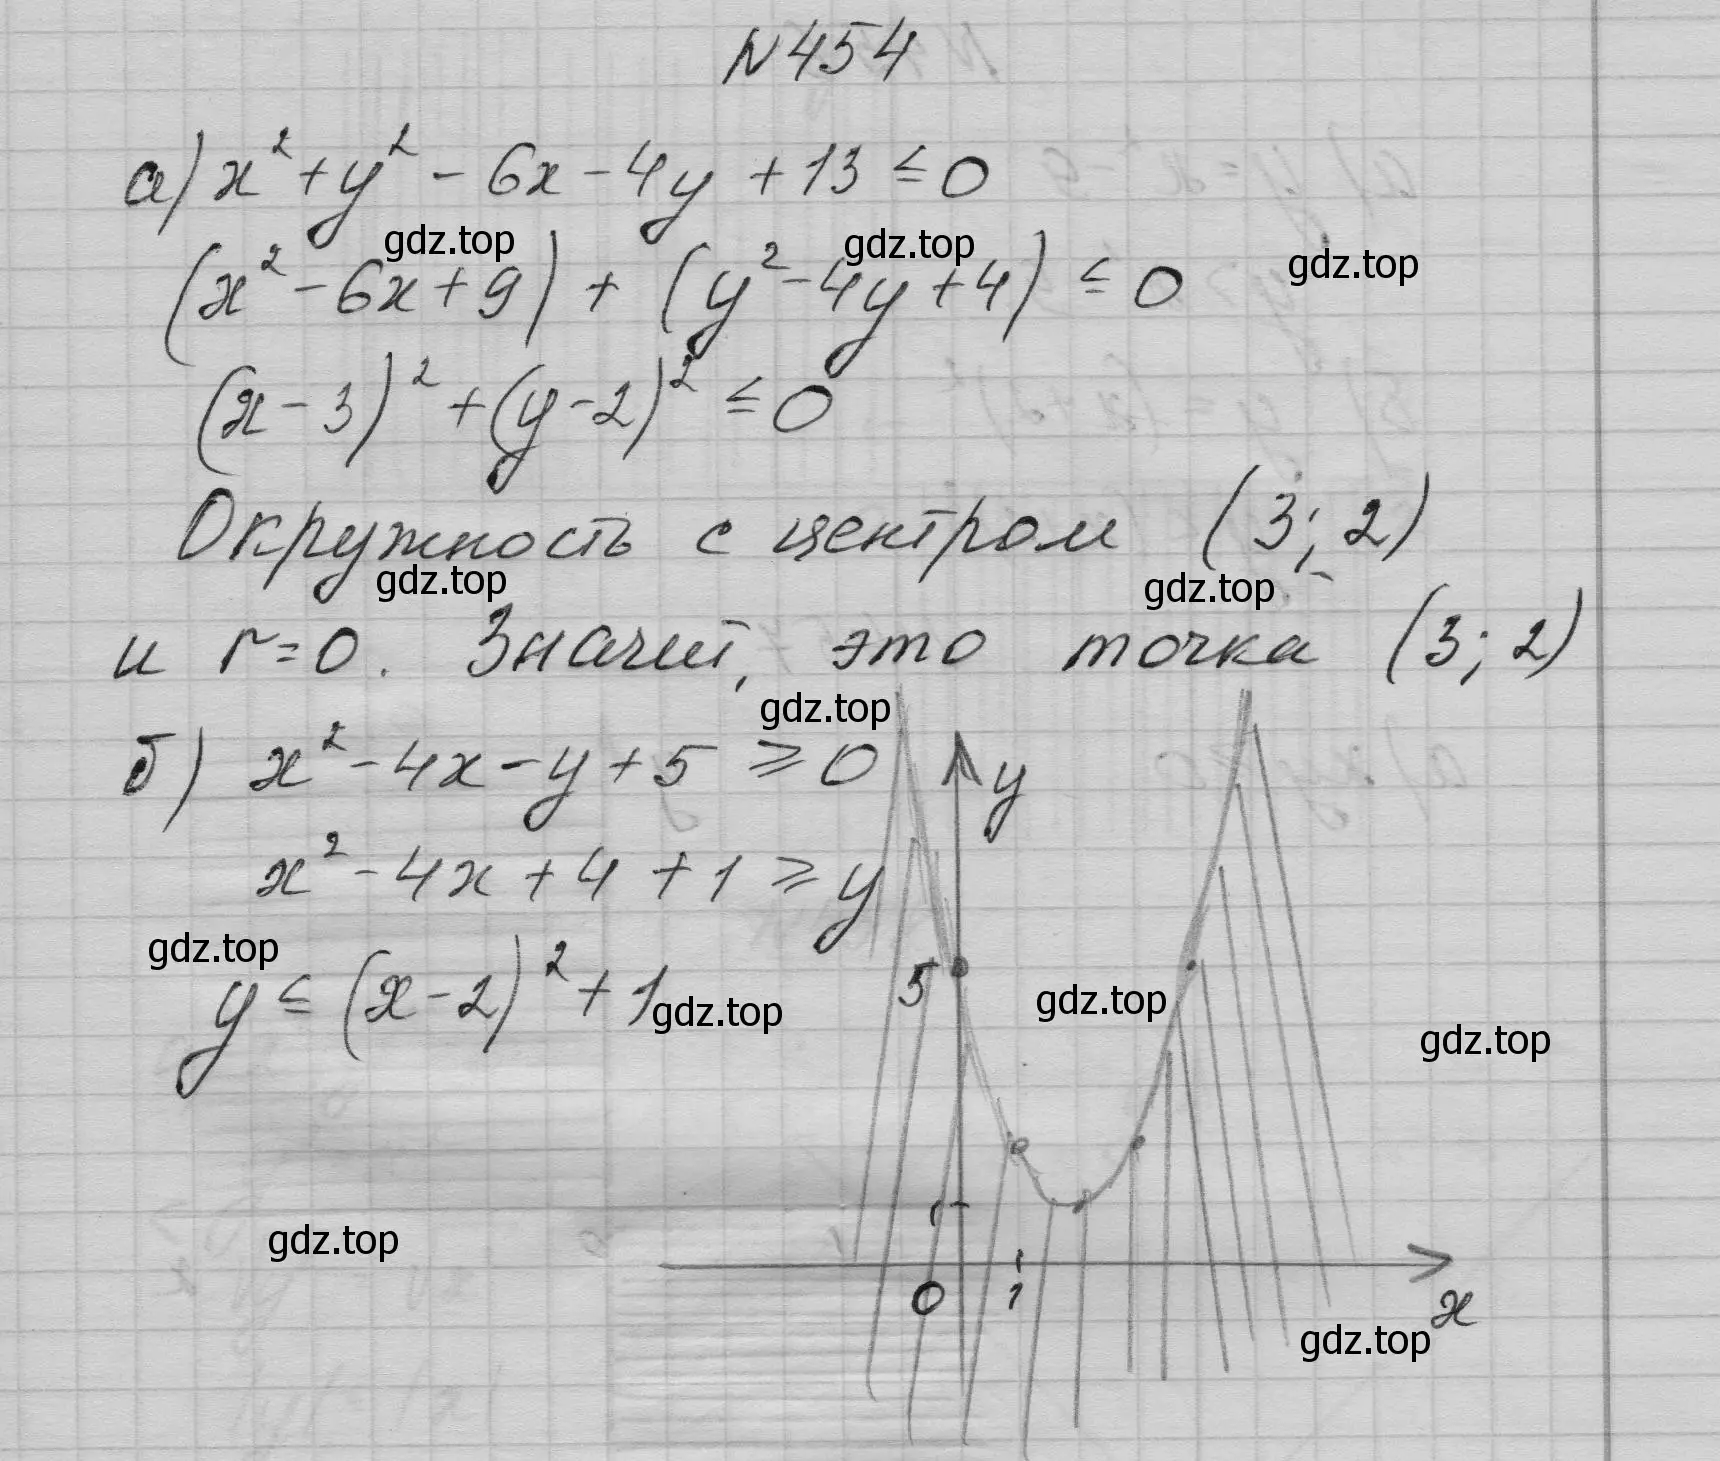 N454
а) x² + y² - 6x - 4y + 13 ≤ 0
gdz.top gdz.top gdz.top
(x² - 6x + 9) + (y² - 4y + 4) ≤ 0
(x - 3)² + (y - 2)² ≤ 0
Окружность с центром (3; 2)
gdz.top gdz.top
и r = 0. Значит, это точка (3; 2)
gdz.top
б) x² - 4x - y + 5 ≥ 0
y
x² - 4x + 4 + 1 ≥ y
gdz.top
y ≤ (x - 2)² + 1
5
gdz.top gdz.top gdz.top
1
gdz.top
0 1 x
gdz.top